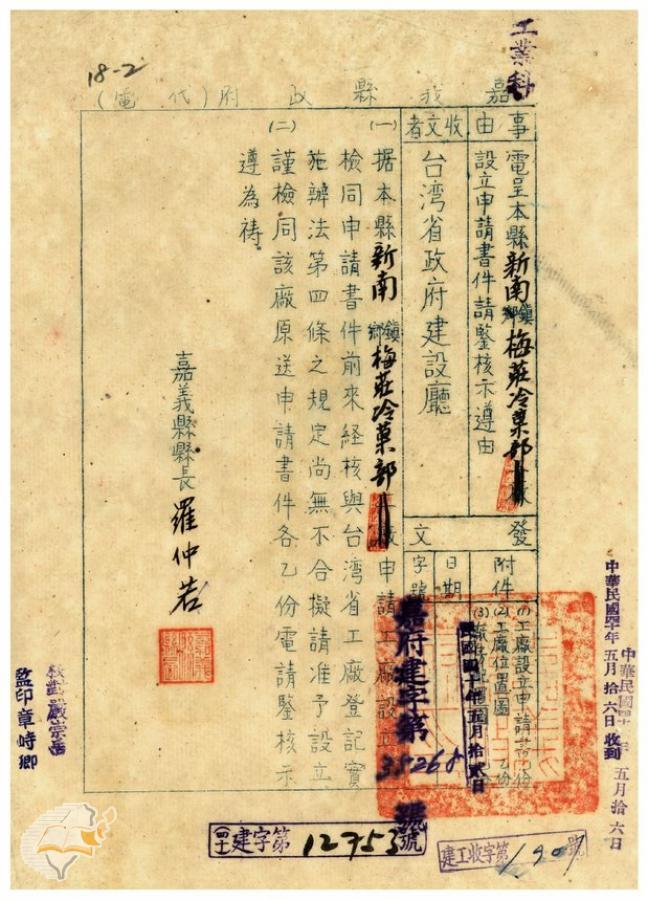 18-2
工業科
嘉義縣政府(代電)
事由
電呈本縣新南鎮鄉梅莊冷菓部
設立申請書件請鑒核示遵由
收文者
台湾省政府建設廳
發文
附件
(1)工廠設立申請書乙份
(2)工廠位置圖乙份
(3)
日期
民國四十年五月拾贰日
字號
嘉府建字第35268號
(一)据本縣新南鎮鄉梅莊冷菓部廠申請工廠設立
檢同申請書件前來経核與台湾省工廠登記實
施辦法第四條之規定尚無不合擬請准予設立
(二)謹檢同該廠原送申請書件各乙份電請鑒核示
遵為祷。
嘉義縣縣長羅仲若
校對嚴宗岳
監印章峙卿
中華民國四十年五月拾六日收到
中華民國四十年五月拾六日
四十建字第12753號
建工收字第1907號